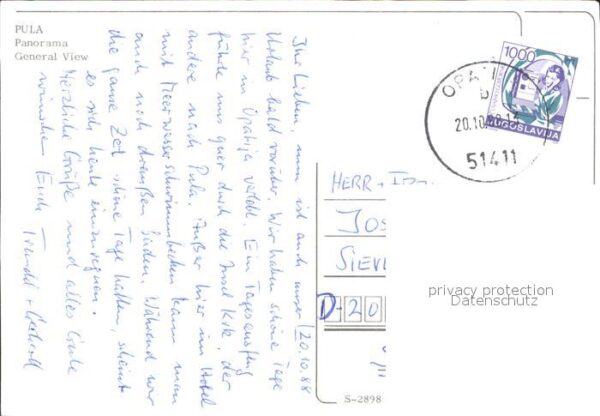 PULA
Panorama
General View
1000
JUGOSLAVIJA
OPATI
20.10.88
51411
20.10.88
Ihr Lieben, nun ist auch unser
Urlaub bald vorüber. Wir haben schöne Tage
hier in Opatija verlebt. Ein Tagesausflug
führte uns quer durch die Insel Krk, der
andere nach Pula. Außer hier im Hotel
mit Meerwasserschwimmbecken kann man
auch noch draußen baden. Während wir
die ganze Zeit schöne Tage hatten, scheint
es sich heute einzuregnen.
Herzliche Grüße und alles Gute
wünschen Euch Traudel + Gerhard
HERR + 
JOS
SIEV
D-20
privacy protection
Datenschutz
S-2898